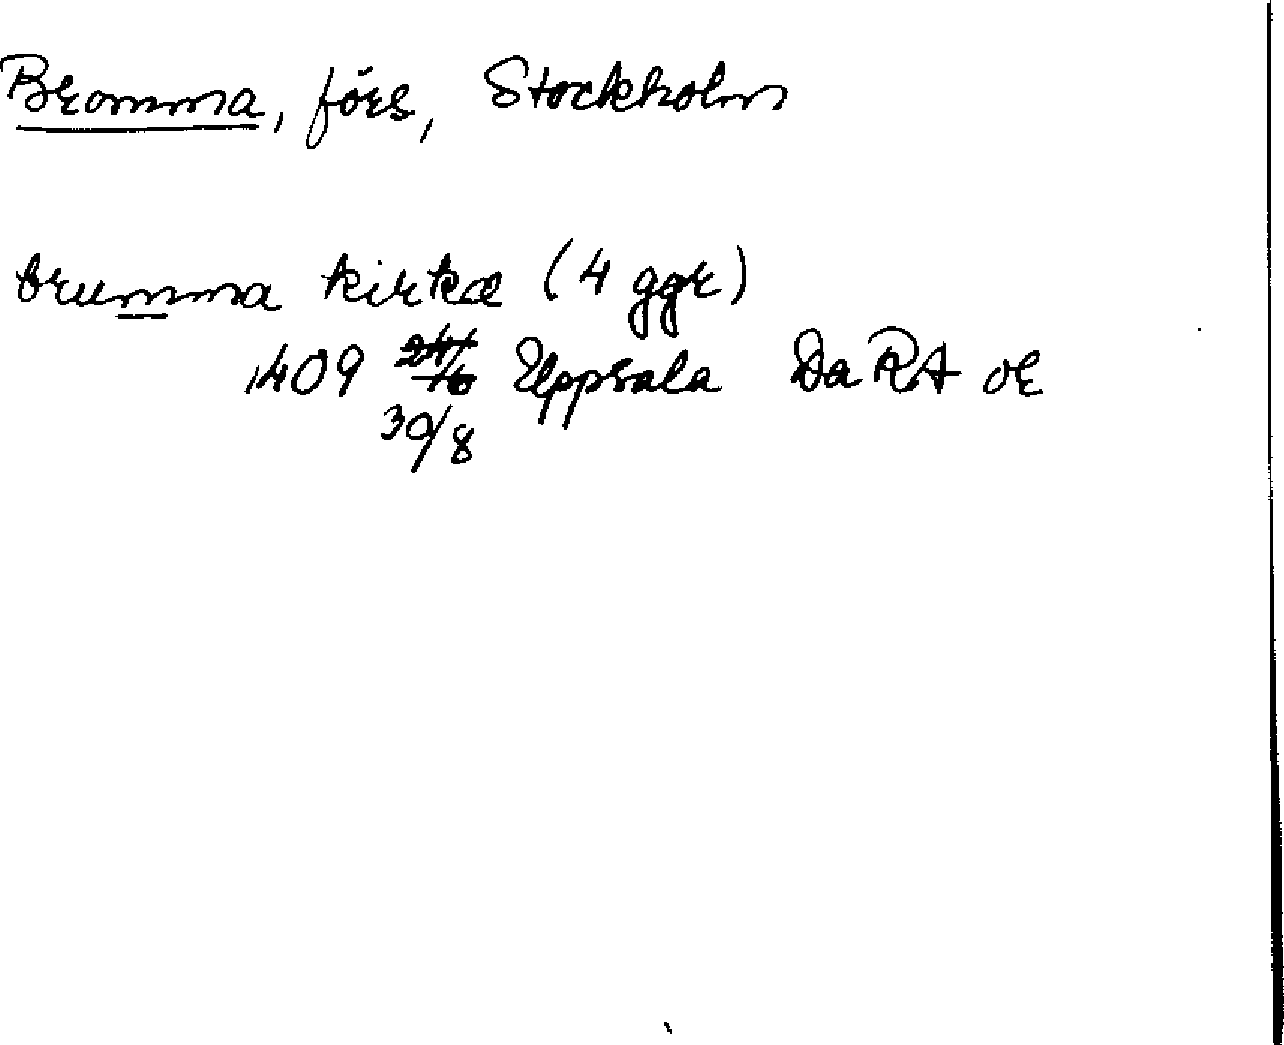 Bromma, förs, Stockholm
brumma kirkæ (4 ggr)
1409 24/6 Uppsala DaRA or
30/8